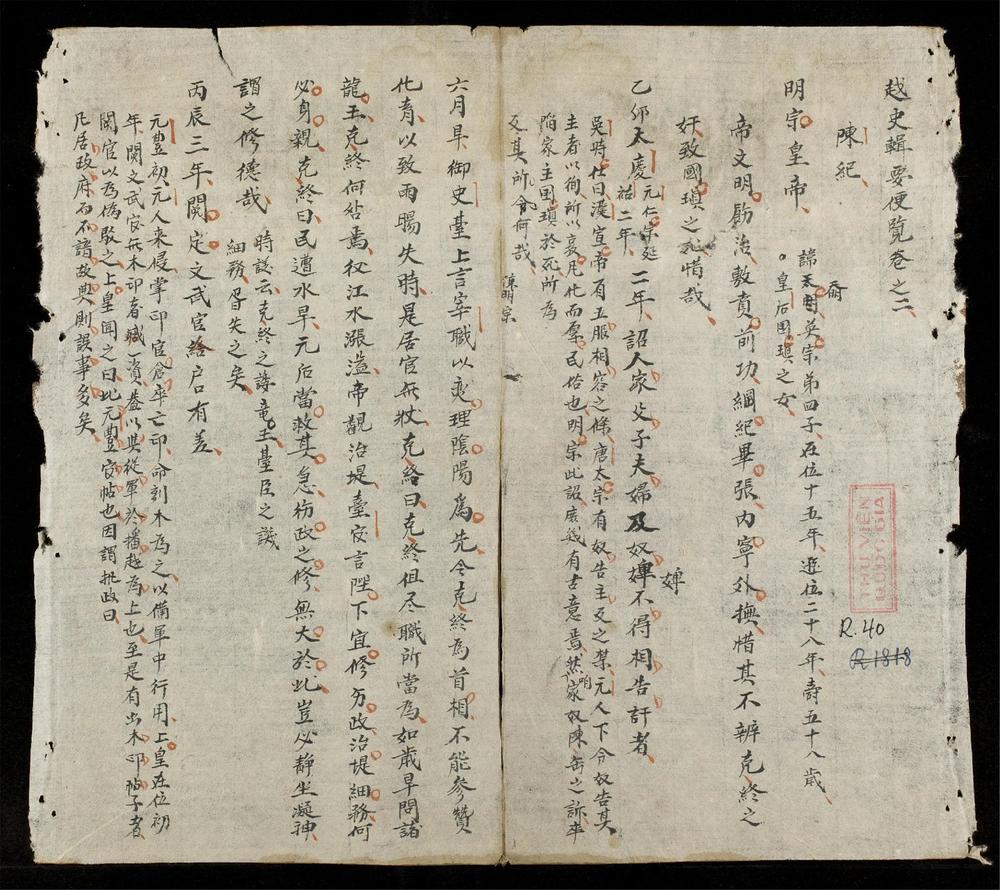 越史輯要便覧卷之二
陳紀
明宗皇帝
諱奣英宗第四子在位十五年遜位二十八年壽五十八歲
皇后國瑱之女
帝文明勵治敷賁前功綱紀畢張内寧外撫惜其不辨克終之
奸致國瑱之死惜哉
乙卯大慶二年詔人家父子夫婦及奴婢不得相告訐者
元仁宗延
祐二年
婢
吳時仕曰漢宣帝有五服相容之條唐太宗有奴告主反之禁元人下令奴告其
主者以徇所以衰凡化而厚民俗也明宗此詔庶幾有古意焉然家奴陳缶之訴卒
陷家主国瑱於死所為
反其所令何哉
陳明宗
六月旱御史臺上言宰職以爕理陰陽爲先今克終為首相不能參贊
化育以致雨暘失時是居官無狀克終曰克終但尽職所當為如歲旱問諸
龍王克終何咎焉秋江水漲溢帝觀治堤臺官言陛下宜修另政治堤細務何
必身親克終曰民遭水旱元后當救其急彷政之修無大於此豈必静坐凝神
謂之修德哉
時議云克終之諉竜王臺臣之譏
細務胥失之矣
丙辰三年閲定文武官給户有差
元豊初元人来侵掌印官倉卒亡印命刻木為之以備軍中行用上皇在位初
年閲文武官無木印者職一資盖以與從軍於播越為上也至是有出木印帖子者
閲官以為偽駁之上皇聞之曰此元豊官帖也因謂執政曰
凡居政府而不諳故典則誤事多矣
THƯ VIỆN
QUỐC GIA
R.40
R.1818